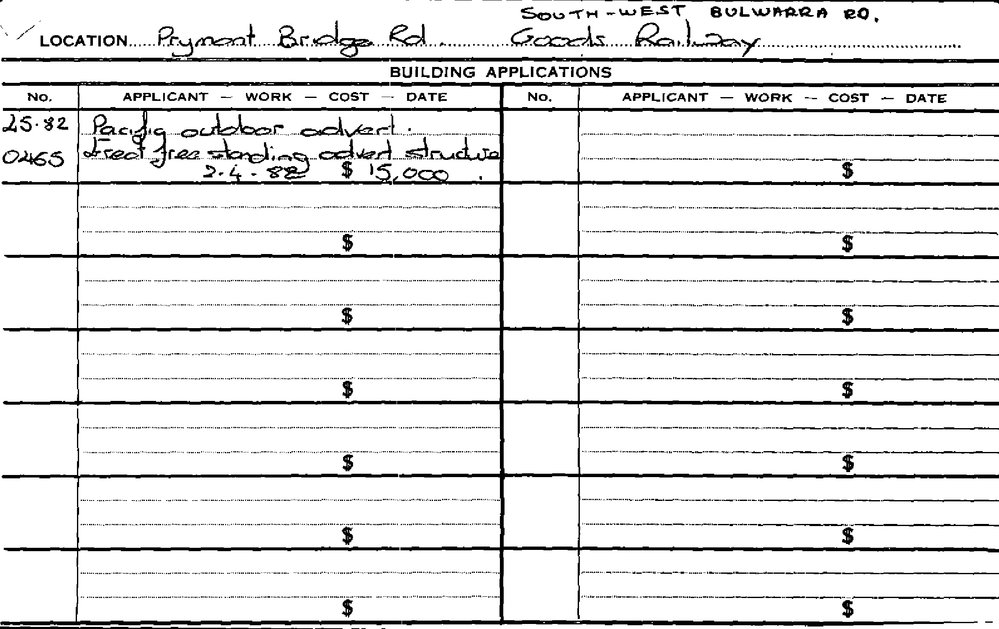 SOUTH-WEST BULWARRA RD.
LOCATION Pyrmont Bridge Rd. Goods Railway
BUILDING APPLICATIONS
No. APPLICANT — WORK — COST — DATE No. APPLICANT — WORK — COST — DATE
25.82 Pacific outdoor advert.
0465 Erect free standing advert structure
2.4.82 $ 15,000. $
$ $
$ $
$ $
$ $
$ $
$ $